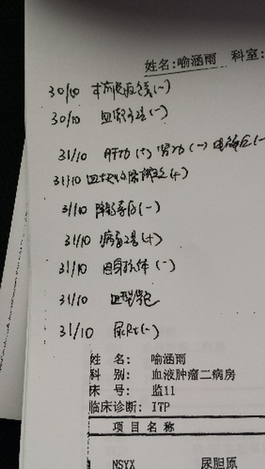 姓名:喻涵雨 科室:
30/10 术前免疫8项(-)
30/10 血凝四项(-)
31/10 肝功(+) 肾功(-) 电解质(-)
31/10 (+)
31/10 降钙素原(-)
31/10 病毒(+)
31/10 自身抗体(-)
31/10 血型
31/10 尿Rt(-)
姓 名: 喻涵雨
科 别: 血液肿瘤二病房
床 号: 监11
临床诊断: ITP
项 目 名 称
NSYX 尿胆原